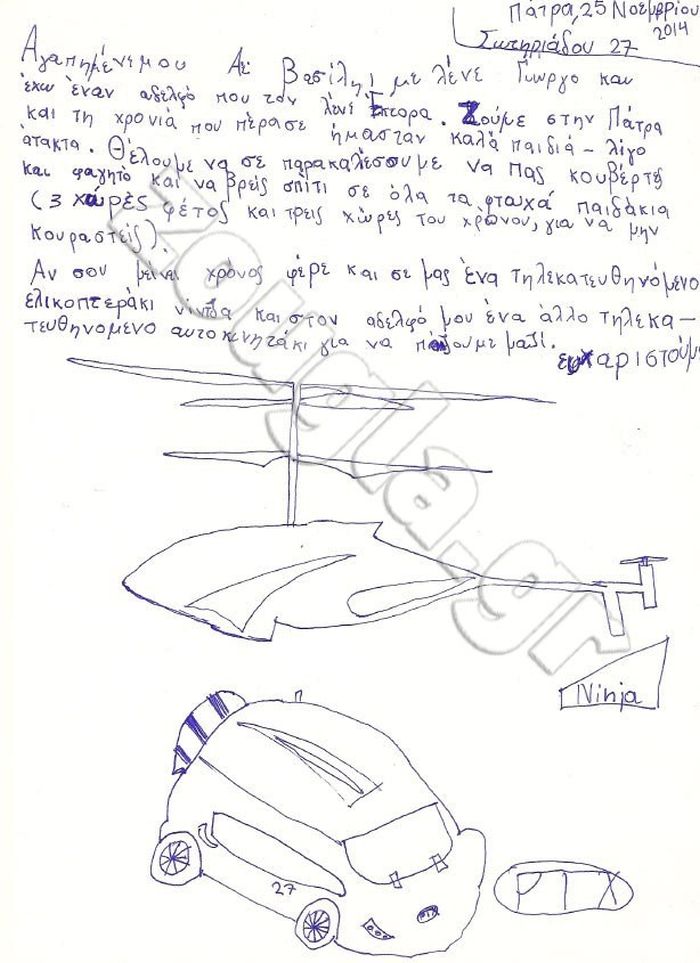 Πάτρα, 25 Νοεμβρίου
2014
Σωτηριάδου 27
Αγαπημένε μου Αϊ Βασίλη, με λένε Γιώργο και
έχω έναν αδελφό που τον λένε Έκτορα. Ζούμε στην Πάτρα
και τη χρονιά που πέρασε ήμασταν καλά παιδιά - λίγο
άτακτα. Θέλουμε να σε παρακαλέσουμε να πας κουβέρτες
και φαγητό και να βρείς σπίτι σε όλα τα φτωχά παιδάκια
(3 χώρες φέτος και τρεις χώρες του χρώνου, για να μην
κουραστείς).
Αν σου μείνει χρόνος φέρε και σε μας ένα τηλεκατευθηνόμενο
ελικοπτεράκι νίντζα και στον αδελφό μου ένα άλλο τηλεκα-
τευθηνομενο αυτοκινητάκι για να παίζουμε μαζί.
ευχαριστούμε
zougla.gr
Ninja
27
PIX
PIX